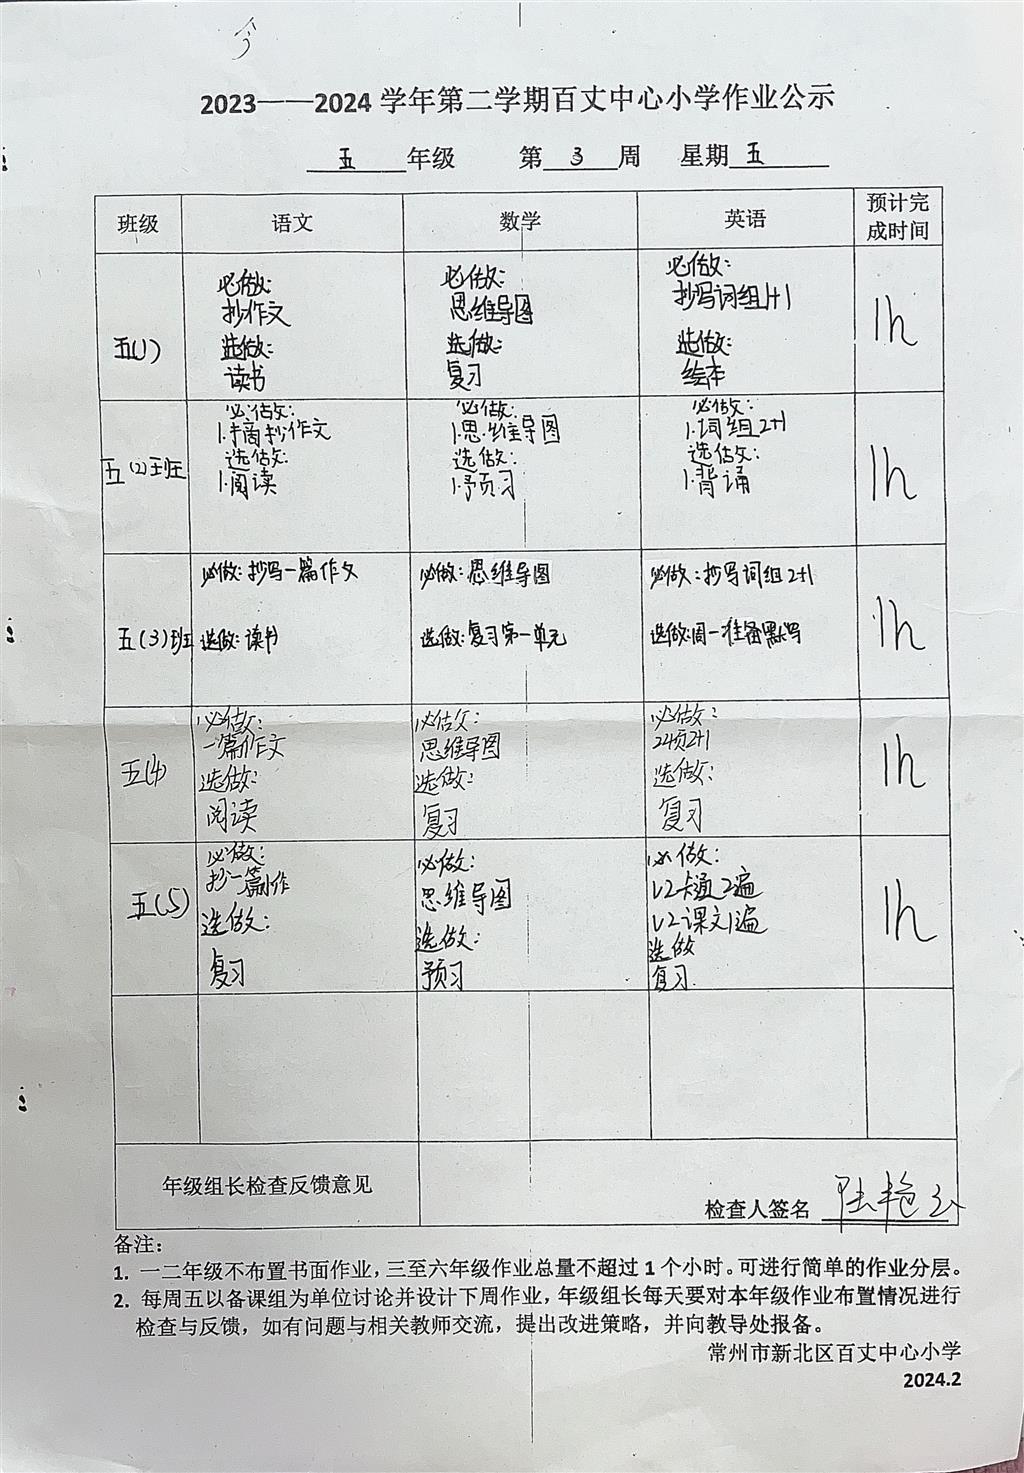 2023——2024 学年第二学期百丈中心小学作业公示
五 年级 第 3 周 星期 五
班级 语文 数学 英语 预计完成时间
五(1)
必做:
抄作文
选做:
读书
必做:
思维导图
选做:
复习
必做:
抄写词组1+1
选做:
绘本
1h
五(2)班
必做:
1.摘抄作文
选做:
1.阅读
必做:
1.思维导图
选做:
1.预习
必做:
1.词组2+1
选做:
1.背诵
1h
五(3)班
必做:抄写一篇作文
选做:读书
必做:思维导图
选做:复习第一单元
必做:抄写词组2+1
选做:周一准备默写
1h
五(4)
必做:
一篇作文
选做:
阅读
必做:
思维导图
选做:
复习
必做:
24页2+1
选做:
复习
1h
五(5)
必做:
抄一篇作
选做:
复习
必做:
思维导图
选做:
预习
必做:
U2卡通2遍
U2课文1遍
选做
复习.
1h
年级组长检查反馈意见
检查人签名
备注:
1. 一二年级不布置书面作业,三至六年级作业总量不超过 1 个小时。可进行简单的作业分层。
2. 每周五以备课组为单位讨论并设计下周作业,年级组长每天要对本年级作业布置情况进行
检查与反馈,如有问题与相关教师交流,提出改进策略,并向教导处报备。
常州市新北区百丈中心小学
2024.2